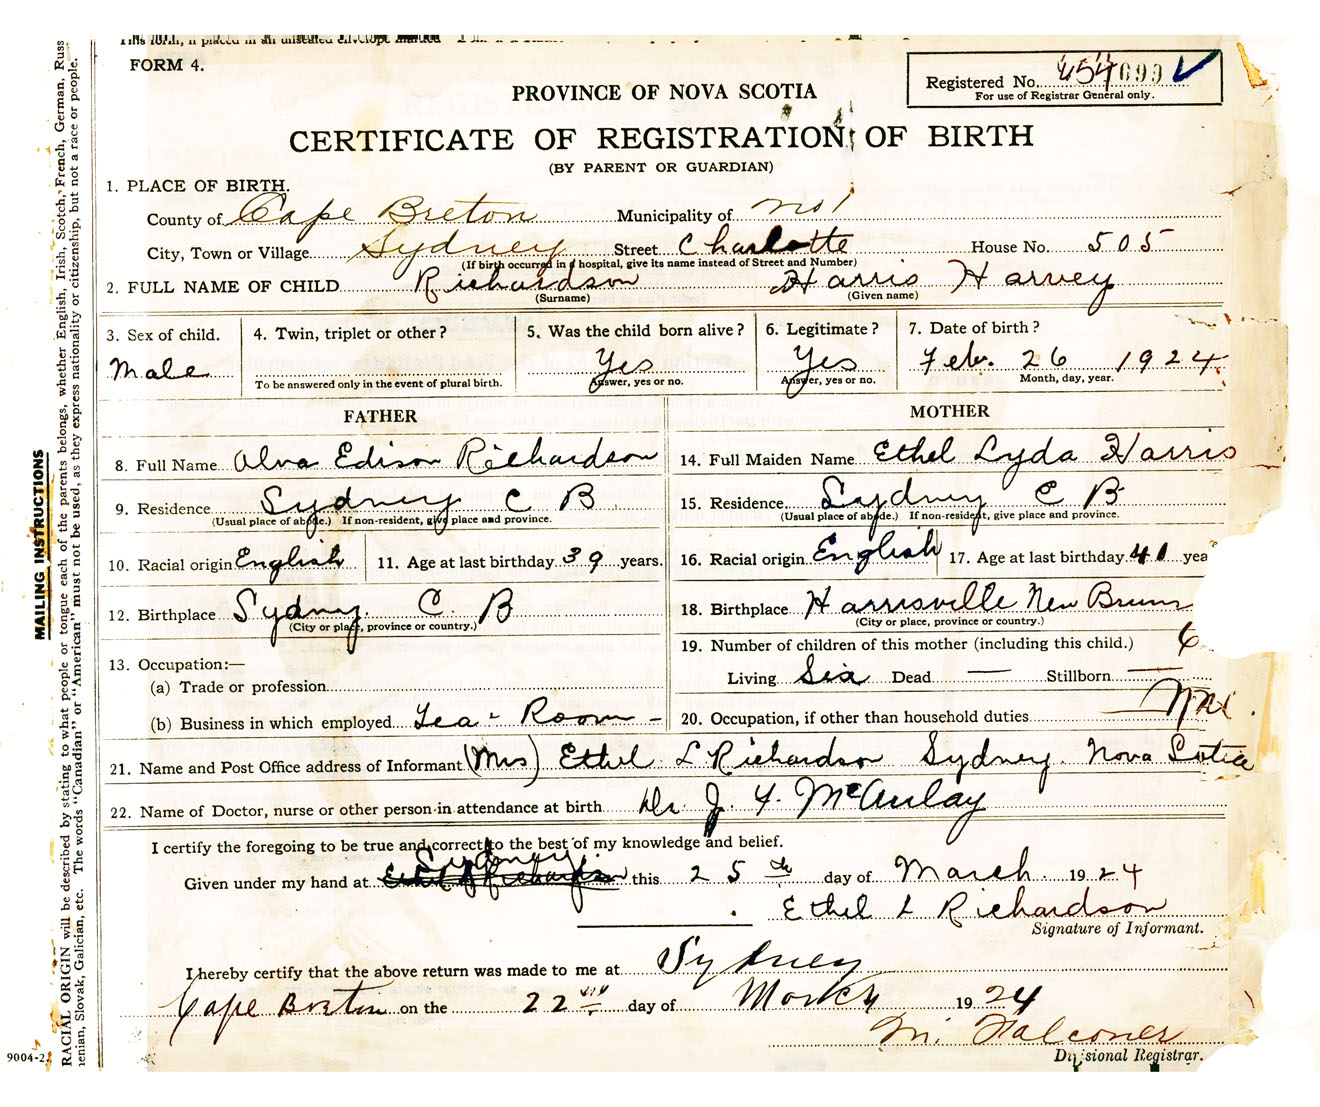 This form, if placed in an unsealed envelope marked
FORM 4.
Registered No. 454 699 ✓
For use of Registrar General only.
PROVINCE OF NOVA SCOTIA
CERTIFICATE OF REGISTRATION OF BIRTH
(BY PARENT OR GUARDIAN)
1. PLACE OF BIRTH.
County of Cape Breton Municipality of No 1
City, Town or Village Sydney Street Charlotte House No. 505
(If birth occurred in a hospital, give its name instead of Street and Number)
2. FULL NAME OF CHILD Richardson Harris Harvey
(Surname) (Given name)
3. Sex of child. Male
4. Twin, triplet or other?
To be answered only in the event of plural birth.
5. Was the child born alive? Yes
Answer, yes or no.
6. Legitimate? Yes
Answer, yes or no.
7. Date of birth? Feb. 26 1924
Month, day, year.
FATHER
8. Full Name Alva Edison Richardson
9. Residence Sydney C B
(Usual place of abode.) If non-resident, give place and province.
10. Racial origin English 11. Age at last birthday 39 years.
12. Birthplace Sydney. C. B
(City or place, province or country.)
13. Occupation:—
(a) Trade or profession
(b) Business in which employed Tea - Room -
MOTHER
14. Full Maiden Name Ethel Lyda Harris
15. Residence Sydney C B
(Usual place of abode.) If non-resident, give place and province.
16. Racial origin English 17. Age at last birthday 41 yea
18. Birthplace Harrisville New Bruns
(City or place, province or country.)
19. Number of children of this mother (including this child.) 6
Living Six Dead — Stillborn —
20. Occupation, if other than household duties
21. Name and Post Office address of Informant (Mrs) Ethel L Richardson Sydney. Nova Scotia
22. Name of Doctor, nurse or other person in attendance at birth Dr. J. F. McAulay
I certify the foregoing to be true and correct to the best of my knowledge and belief.
Given under my hand at Sydney this 25th day of March. 1924
Ethel L Richardson
Signature of Informant.
I hereby certify that the above return was made to me at Sydney
Cape Breton on the 22nd day of March 1924
M. Falconer
Divisional Registrar.
MAILING INSTRUCTIONS
RACIAL ORIGIN will be described by stating to what people or tongue each of the parents belongs, whether English, Irish, Scotch, French, German, Russ
ienian, Slovak, Galician, etc. The words "Canadian" or "American" must not be used, as they express nationality or citizenship, but not a race or people.
9004-2